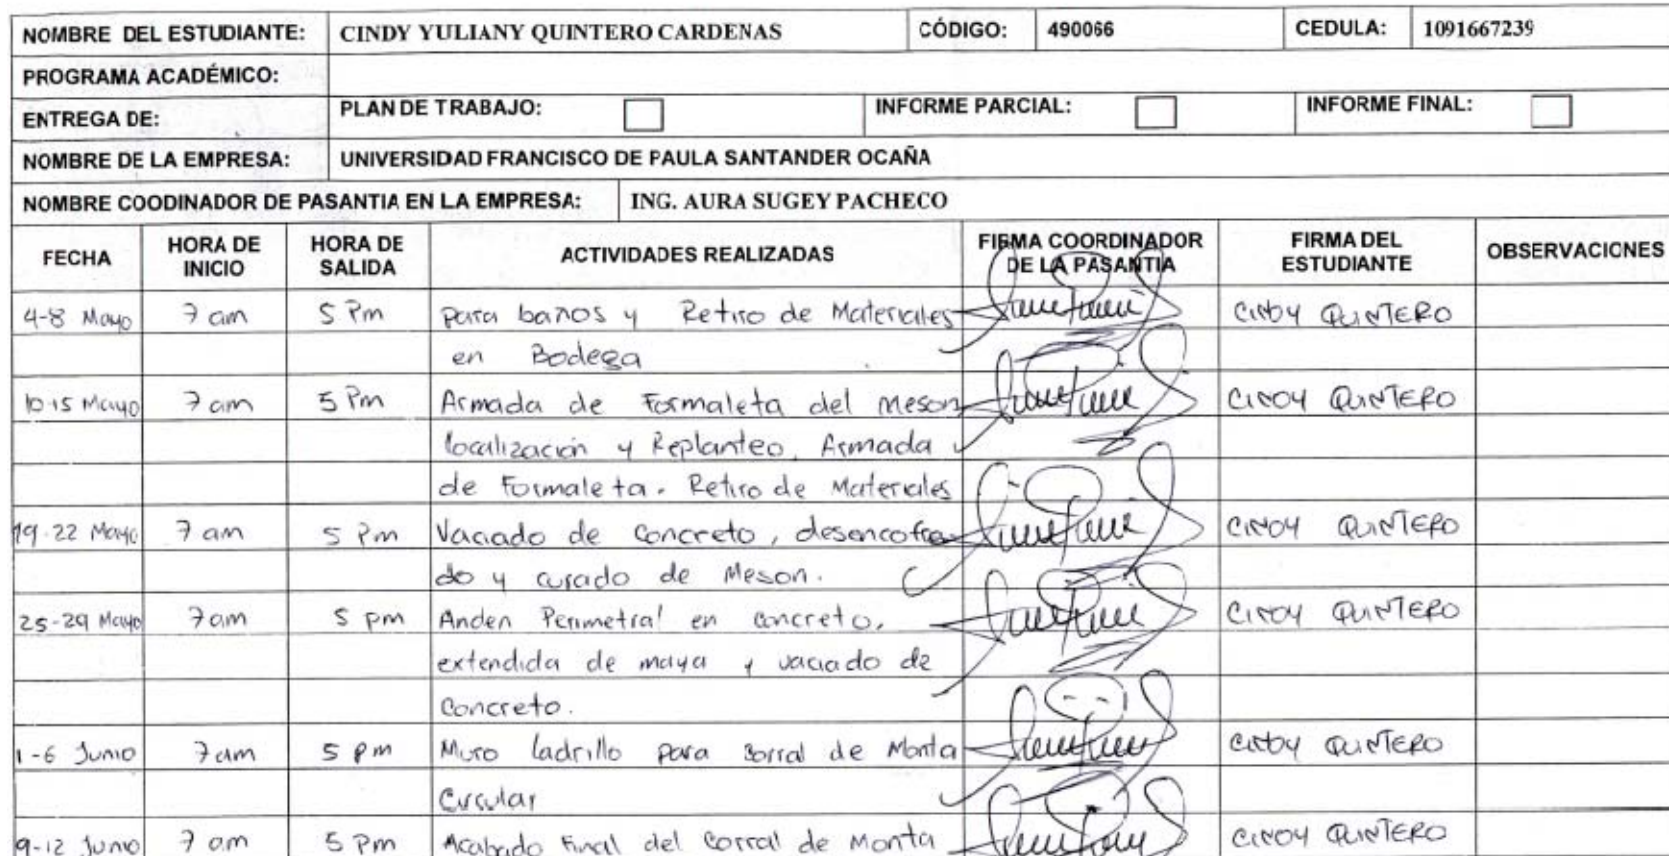 NOMBRE DEL ESTUDIANTE: CINDY YULIANY QUINTERO CARDENAS CÓDIGO: 490066 CEDULA: 1091667239
PROGRAMA ACADÉMICO:
ENTREGA DE: PLAN DE TRABAJO: INFORME PARCIAL: INFORME FINAL:
NOMBRE DE LA EMPRESA: UNIVERSIDAD FRANCISCO DE PAULA SANTANDER OCAÑA
NOMBRE COODINADOR DE PASANTIA EN LA EMPRESA: ING. AURA SUGEY PACHECO
FECHA HORA DE INICIO HORA DE SALIDA ACTIVIDADES REALIZADAS FIRMA COORDINADOR DE LA PASANTIA FIRMA DEL ESTUDIANTE OBSERVACIONES
4-8 Mayo 7 am 5 Pm para baños y Retiro de Materiales CINDY QUINTERO
en Bodega
10-15 Mayo 7 am 5 Pm Armada de Formaleta del meson CINDY QUINTERO
localización y Replanteo, Armada
de Formaleta. Retiro de Materiales
19-22 Mayo 7 am 5 Pm Vaciado de concreto, desencofra CINDY QUINTERO
do y curado de Meson.
25-29 Mayo 7 am 5 pm Anden Perimetral en concreto, CINDY QUINTERO
extendida de maya y vaciado de
Concreto.
1-6 Junio 7 am 5 pm Muro ladrillo para Corral de Monta CINDY QUINTERO
Circular
9-12 Junio 7 am 5 Pm Acabado Final del Corral de Monta CINDY QUINTERO